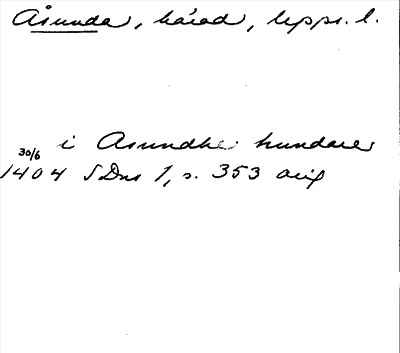 Åsunda, härad, Upps. l.
i Asundhe hundare
30/6
1404 SDns 1, s. 353 orig